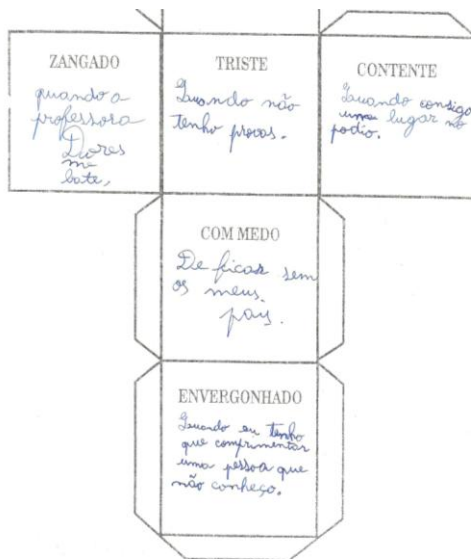 ZANGADO
quando a
professora
Dores
me
bate,
TRISTE
Quando não
tenho provas.
CONTENTE
Quando consigo
um lugar no
podio.
COM MEDO
De ficar sem
os meus
pais.
ENVERGONHADO
Quando eu tenho
que comprimentar
uma pessoa que
não conheço.